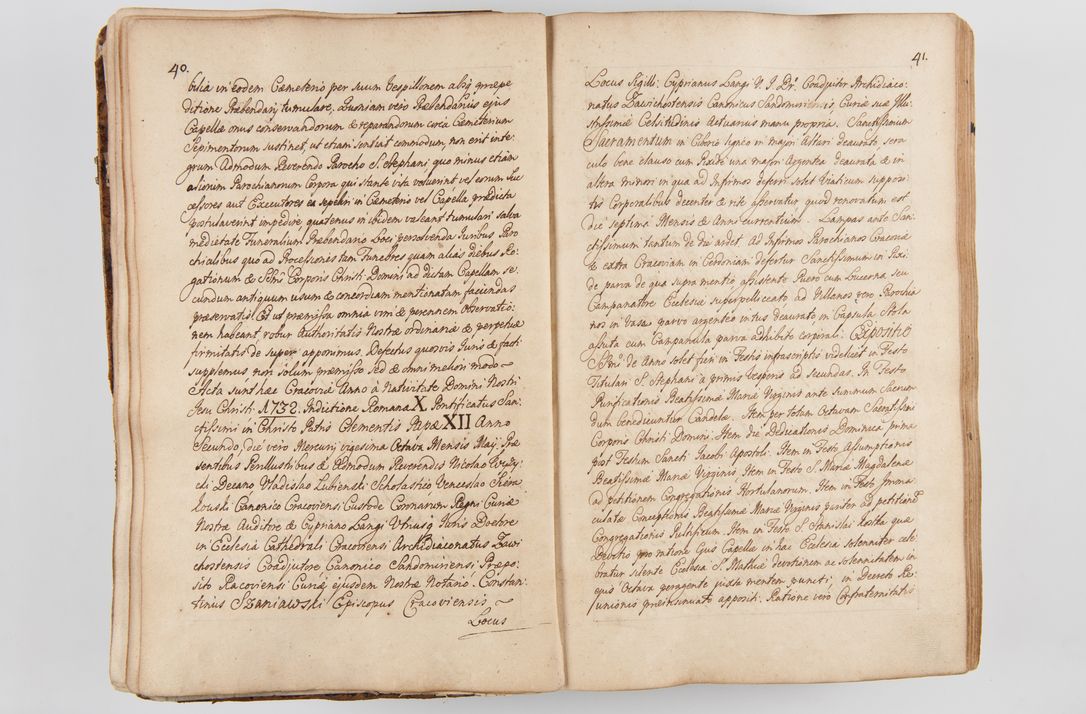 40.
bilia in eodem Cæmeterio per suum Vespillonem absq præpe
ditione Præbendarij tumulare, Quoniam vero Præbendarius ejus
Capellæ onus conservandorum & reparandorum circa Cæmeterium
Sepimentorum sustinet, ut etiam sentiat commodum, non erit inte
grum Admodum Reverendo Parocho S. Stephani quo minus etiam
aliorum Parochianorum Corpora qui stante vita voluerint vel eorum Suc
cessores aut Executores ea sepeliri in Cæmeterio vel Capella prædicta
postulaverint impedire, quatenus in ibidem valeant tumulari salva
medietate Funeralium Præbendario Loci persolvenda Juribus Paro
chialibus quo ad Processiones tam Funebres quam aliàs diebus Ro
gationum & Ssmi Corporis Christi Domini ad dictam Capellam se
cundum antiquum usum & concordiam mentionatam faciendas
præservatis. Et ut præmissa omnia vim & perennem observatio
nem habeant, robur Authoritatis Nostræ ordinariæ & perpetuæ
firmitatis de super apponimus. Defectus quosvis Juris & facti
supplemus non solum præmisso sed & omni meliori modo ~
Acta sunt hæc Cracoviæ Anno à Nativitate Domini Nostri
Jesu Christi 1732. Indictione Romana X Pontificatus San
ctissimi in Christo Patris Clementis Papæ XII Anno
Secundo, die vero Mercurij vigesima Octava Mensis Maij. Præ
sentibus Perillustribus & Admodum Reverendis Nicolao
cki Decano Vladislao Lubienski Scholastico Venceslao
Canonico Cracoviensi Custode Coronarum Regni Curiæ
Nostræ Auditore & Cypriano Langi Utriusq Juris Doctore
in Ecclesia Cathedrali Cracoviensi Archidiaconatus Zawi
chostensis Coadjutore Canonico Sandomiriensi Præpo
sito Racoviensi Curiæ ejusdem Nostræ Notario. Constan
tinus Szaniawski Episcopus Cracoviensis ~
Locus
41.
Locus Sigilli: Cyprianus Langi V. J. Dr. Coadjutor Archidiaco
natus Zawichostensis Canonicus Sandomiriensis, Curiæ suæ Illu
strissimæ Celsitudinis Actuarius manu propria. Sanctissimum
Sacramentum in Ciborio ligneo in majori Altari deaurato, sera
culo bene clauso cum Pixide una majori Argentea deaurata & in
altera minori in qua ad Infirmos deferri solet Viaticum supposi
tis Corporalibus decenter & rite asservatur, quod renovatum est
die septima Mensis & Anni currentium. Lampas ante San
ctissimum tantum de die ardet. Ad Infirmos Parochianos Cracoviæ
& extra Cracoviam in defertur Sanctissimum in Pixi
de parva de qua supra mentio assistente Puero cum Lucerna, seu
Campanatore Ecclesiæ superpelliceato ad Villanos vero Parochia
nos in Vase parvo argenteo intus deaurato in Capsula Stola
assuta cum Campanula parva adhibito corporali: Expositio
SSmi de Anno solet fieri in Festis infrascriptis videlicet in Festo
Titulari S. Stephani à primis vesperis ad secundas. In Festo
Purificationis Beatissimæ Mariæ Virginis ante summum Sacrum
dum benedicuntur Candelæ. Item per totam Octavam Sacratissimi
Corporis Christi Domini. Item die Dedicationis Dominica prima
post Festum Sancti Jacobi Apostoli. Item in Festo Assumptionis
Beatissimæ Mariæ Virginis, Item in Festo S. Mariæ Magdalenæ
ad petitionem Congregationis Hortulanorum. Item in Festo Imma
culatæ Conceptionis Beatissimæ Mariæ Virginis pariter ad petitionem
Congregationis Item in Festo S. Stanislai Kostka quæ
Devotio pro ratione Ejus Capellæ in hac Ecclesia solenniter cele
bratur silente Ecclesia S. Mathiæ devotionem ac solennitatem in
ejus Octava peragente juxta mentem puncti, in Decreto Re
unionis præinsinuato appositi. Ratione vero Confraternitatis